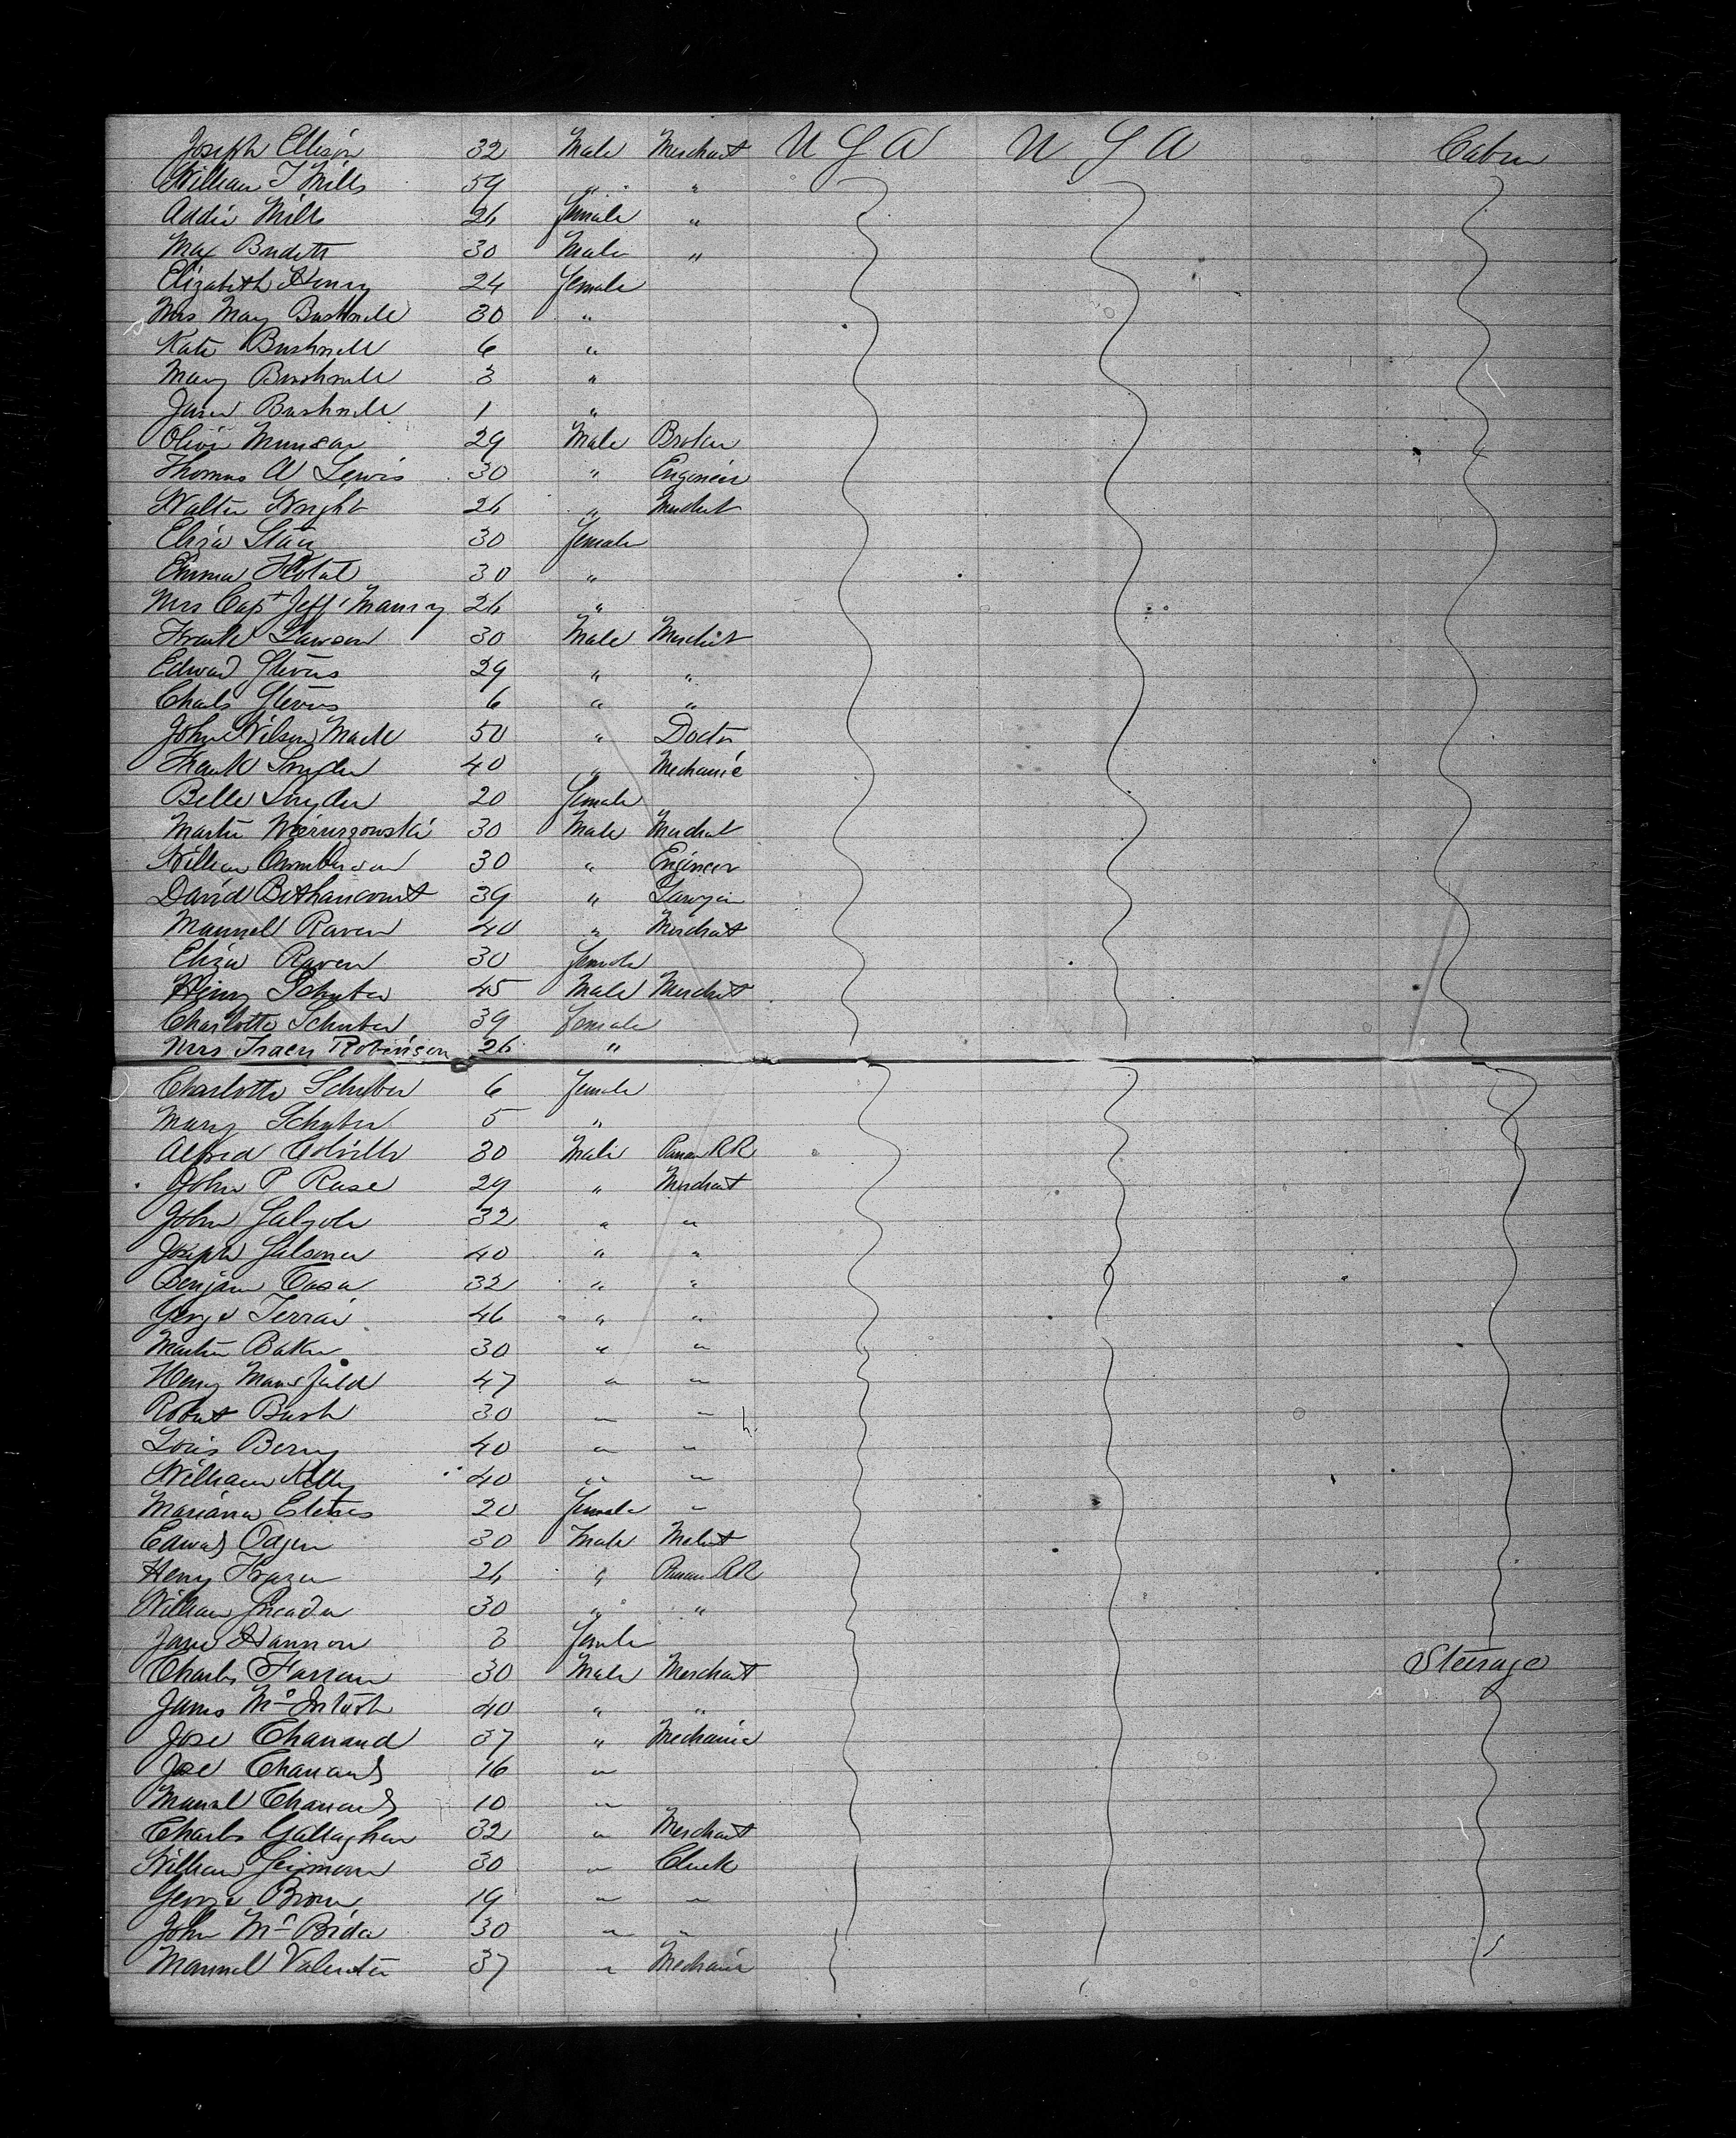 Joseph Ellison 32 Male Merchant U S A U S A Cabin
William T Mills 59 " "
Addie Mills 26 female "
Max Budett 30 Male "
Elizabeth Henry 24 female
Mrs Mary Bushnell 30 "
Kate Bushnell 6 "
Mary Bushnell 3 "
Jane Bushnell 1 "
Olivi Munson 29 Male Broker
Thomas A Lewis 30 " Engineer
Walter Wright 26 " Merchant
Eliza 30 female
Emma 30 "
Mrs Capt Jeff Maury 26 "
Frank Lawson 30 Male Merchant
Edward Stevens 29 " "
Charls Stevens 6 " "
John Wilson Mack 50 " Doctor
Frank Snyder 40 " Mechanic
Belle Snyder 20 female
Martin Wieruszowski 30 Male Merchant
William 30 " Engineer
David Bethancourt 39 " Lawyer
Manuel Raven 40 " Merchant
Eliza Raven 30 female
Henry Schuber 45 Male Merchant
Charlotte Schuber 39 female
Mrs Tracy Robinson 26 "
Charlotte Schuber 6 female
Mary Schuber 5 "
Alfred Colville 30 Male Panama RR
John P Rase 29 " Merchant
John 32 " "
Joseph 40 " "
Benjam Casa 32 " "
George 46 " "
Martin Baker 30 " "
Henry Mansfield 47 " "
Robert Bush 30 " "
Louis Berry 40 " "
William Kelly 40 " "
Mariana 20 female "
Edward Ogen 30 Male Mechant
Henry Frazer 26 " Panam RR
William 30 " "
Jane Hannon 3 female
Charls Farran 30 Male Merchant Steerage
James McIntosh 40 " "
Jose Chanand 37 " Mechanic
Joe Chanand 16 "
Manal Chanand 10 "
Charls Gallagher 32 " Merchant
William 30 " Clerk
George Brown 19 " "
John McBride 30 " "
Manuel Valentin 37 " Mechanic